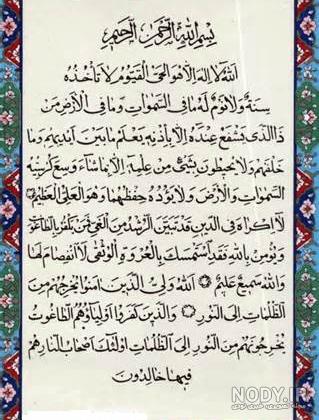 بِسْمِ اللهِ الرَّحْمٰنِ الرَّحِيمِ
اَللهُ لَا اِلٰهَ اِلَّا هُوَ الْحَىُّ الْقَيُّومُ لَا تَأْخُذُهُ
سِنَةٌ وَلَا نَوْمٌ لَهُ مَا فِى السَّمٰوَاتِ وَمَا فِى الْاَرْضِ مَنْ
ذَا الَّذِى يَشْفَعُ عِنْدَهُ اِلَّا بِاِذْنِهِ يَعْلَمُ مَا بَيْنَ اَيْدِيهِمْ وَمَا
خَلْفَهُمْ وَلَا يُحِيطُونَ بِشَىْءٍ مِنْ عِلْمِهِ اِلَّا بِمَا شَاءَ وَسِعَ كُرْسِيُّهُ
السَّمٰوَاتِ وَالْاَرْضَ وَلَا يَؤُدُهُ حِفْظُهُمَا وَهُوَ الْعَلِىُّ الْعَظِيمُ
لَا اِكْرَاهَ فِى الدِّينِ قَدْ تَبَيَّنَ الرُّشْدُ مِنَ الْغَىِّ فَمَنْ يَكْفُرْ بِالطَّاغُوتِ
وَيُؤْمِنْ بِاللهِ فَقَدِ اسْتَمْسَكَ بِالْعُرْوَةِ الْوُثْقٰى لَا انْفِصَامَ لَهَا
وَاللهُ سَمِيعٌ عَلِيمٌ اَللهُ وَلِىُّ الَّذِينَ اٰمَنُوا يُخْرِجُهُمْ مِنَ
الظُّلُمَاتِ اِلَى النُّورِ وَالَّذِينَ كَفَرُوا اَوْلِيَاؤُهُمُ الطَّاغُوتُ
يُخْرِجُونَهُمْ مِنَ النُّورِ اِلَى الظُّلُمَاتِ اُولٰئِكَ اَصْحَابُ النَّارِ هُمْ
فِيهَا خَالِدُونَ
NODY.IR